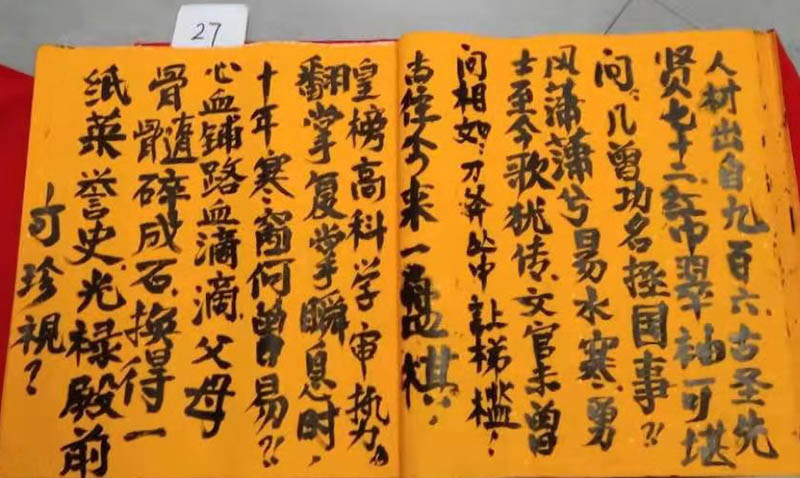 27
人材出自九百六、古圣先
贤七十二、红巾翠袖可堪
问、几曾功名拯国事？！
风萧萧兮易水寒、勇
士至今歌犹传、文官未曾
问相如、刀斧丛中
古往今来一棋
皇榜高科学审执力。
翻掌复掌瞬息时，
十年寒窗何曾易？！
心血铺路血滴滴、父母
骨髓碎成石、换得一
纸荣誉史、光禄殿前
可珍视？